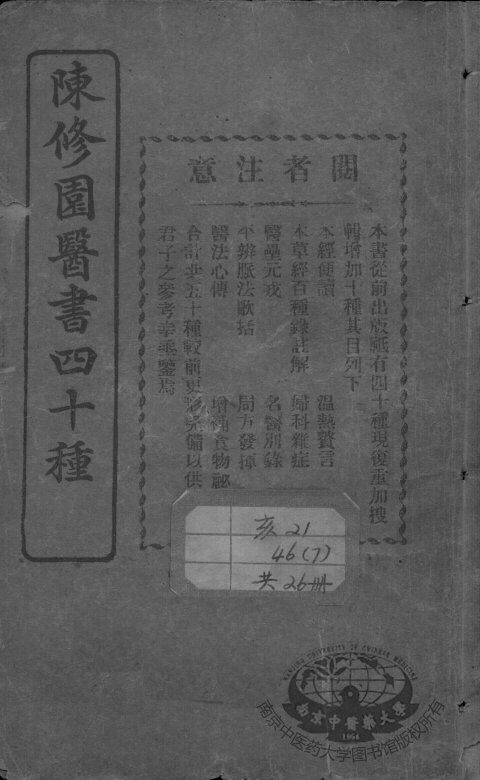 陳修園醫書四十種
閱者注意
本書從前出版祗有四十種現復重加搜
輯增加十種其目列下
本經便讀 溫熱贅言
本草經百種錄註解 婦科雜症
醫壘元戎 名醫別錄
平辨脈法歌括 局方發揮
醫法心傳 增補食物秘
合計五十種較前更形完備以供
君子之參考幸垂鑒焉
亥 21
46(7)
共 26冊
NANJING UNIVERSITY OF CHINESE MEDICINE
南京中醫藥大學
1954
南京中医药大学图书馆版权所有